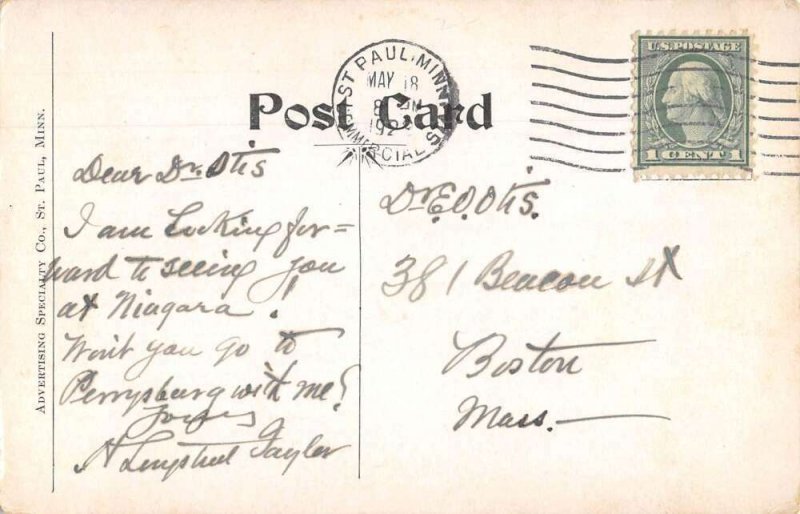 Post Card
ST PAUL, MINN.
MAY 18
COMMERCIAL
U.S. POSTAGE
1 CENT 1
ADVERTISING SPECIALTY CO., ST. PAUL, MINN.
Dear Dr. Otis
I am looking for=
ward to seeing you
at Niagara!
Won't you go to
Perrysburg with me?
Yours
H Longstreet Taylor
Dr E.O. Otis.
381 Beacon St
Boston
Mass.